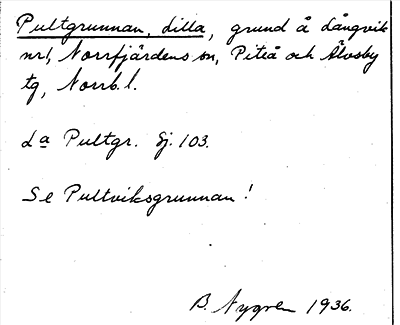 Pultgrunnan, Lilla, grund å Långvik
nr 1, Norrfjärdens sn, Piteå och Älvsby
tg, Norrb. l.
La Pultgr. Sj. 103.
Se Pultviksgrunnan!
B. Nygren 1936.